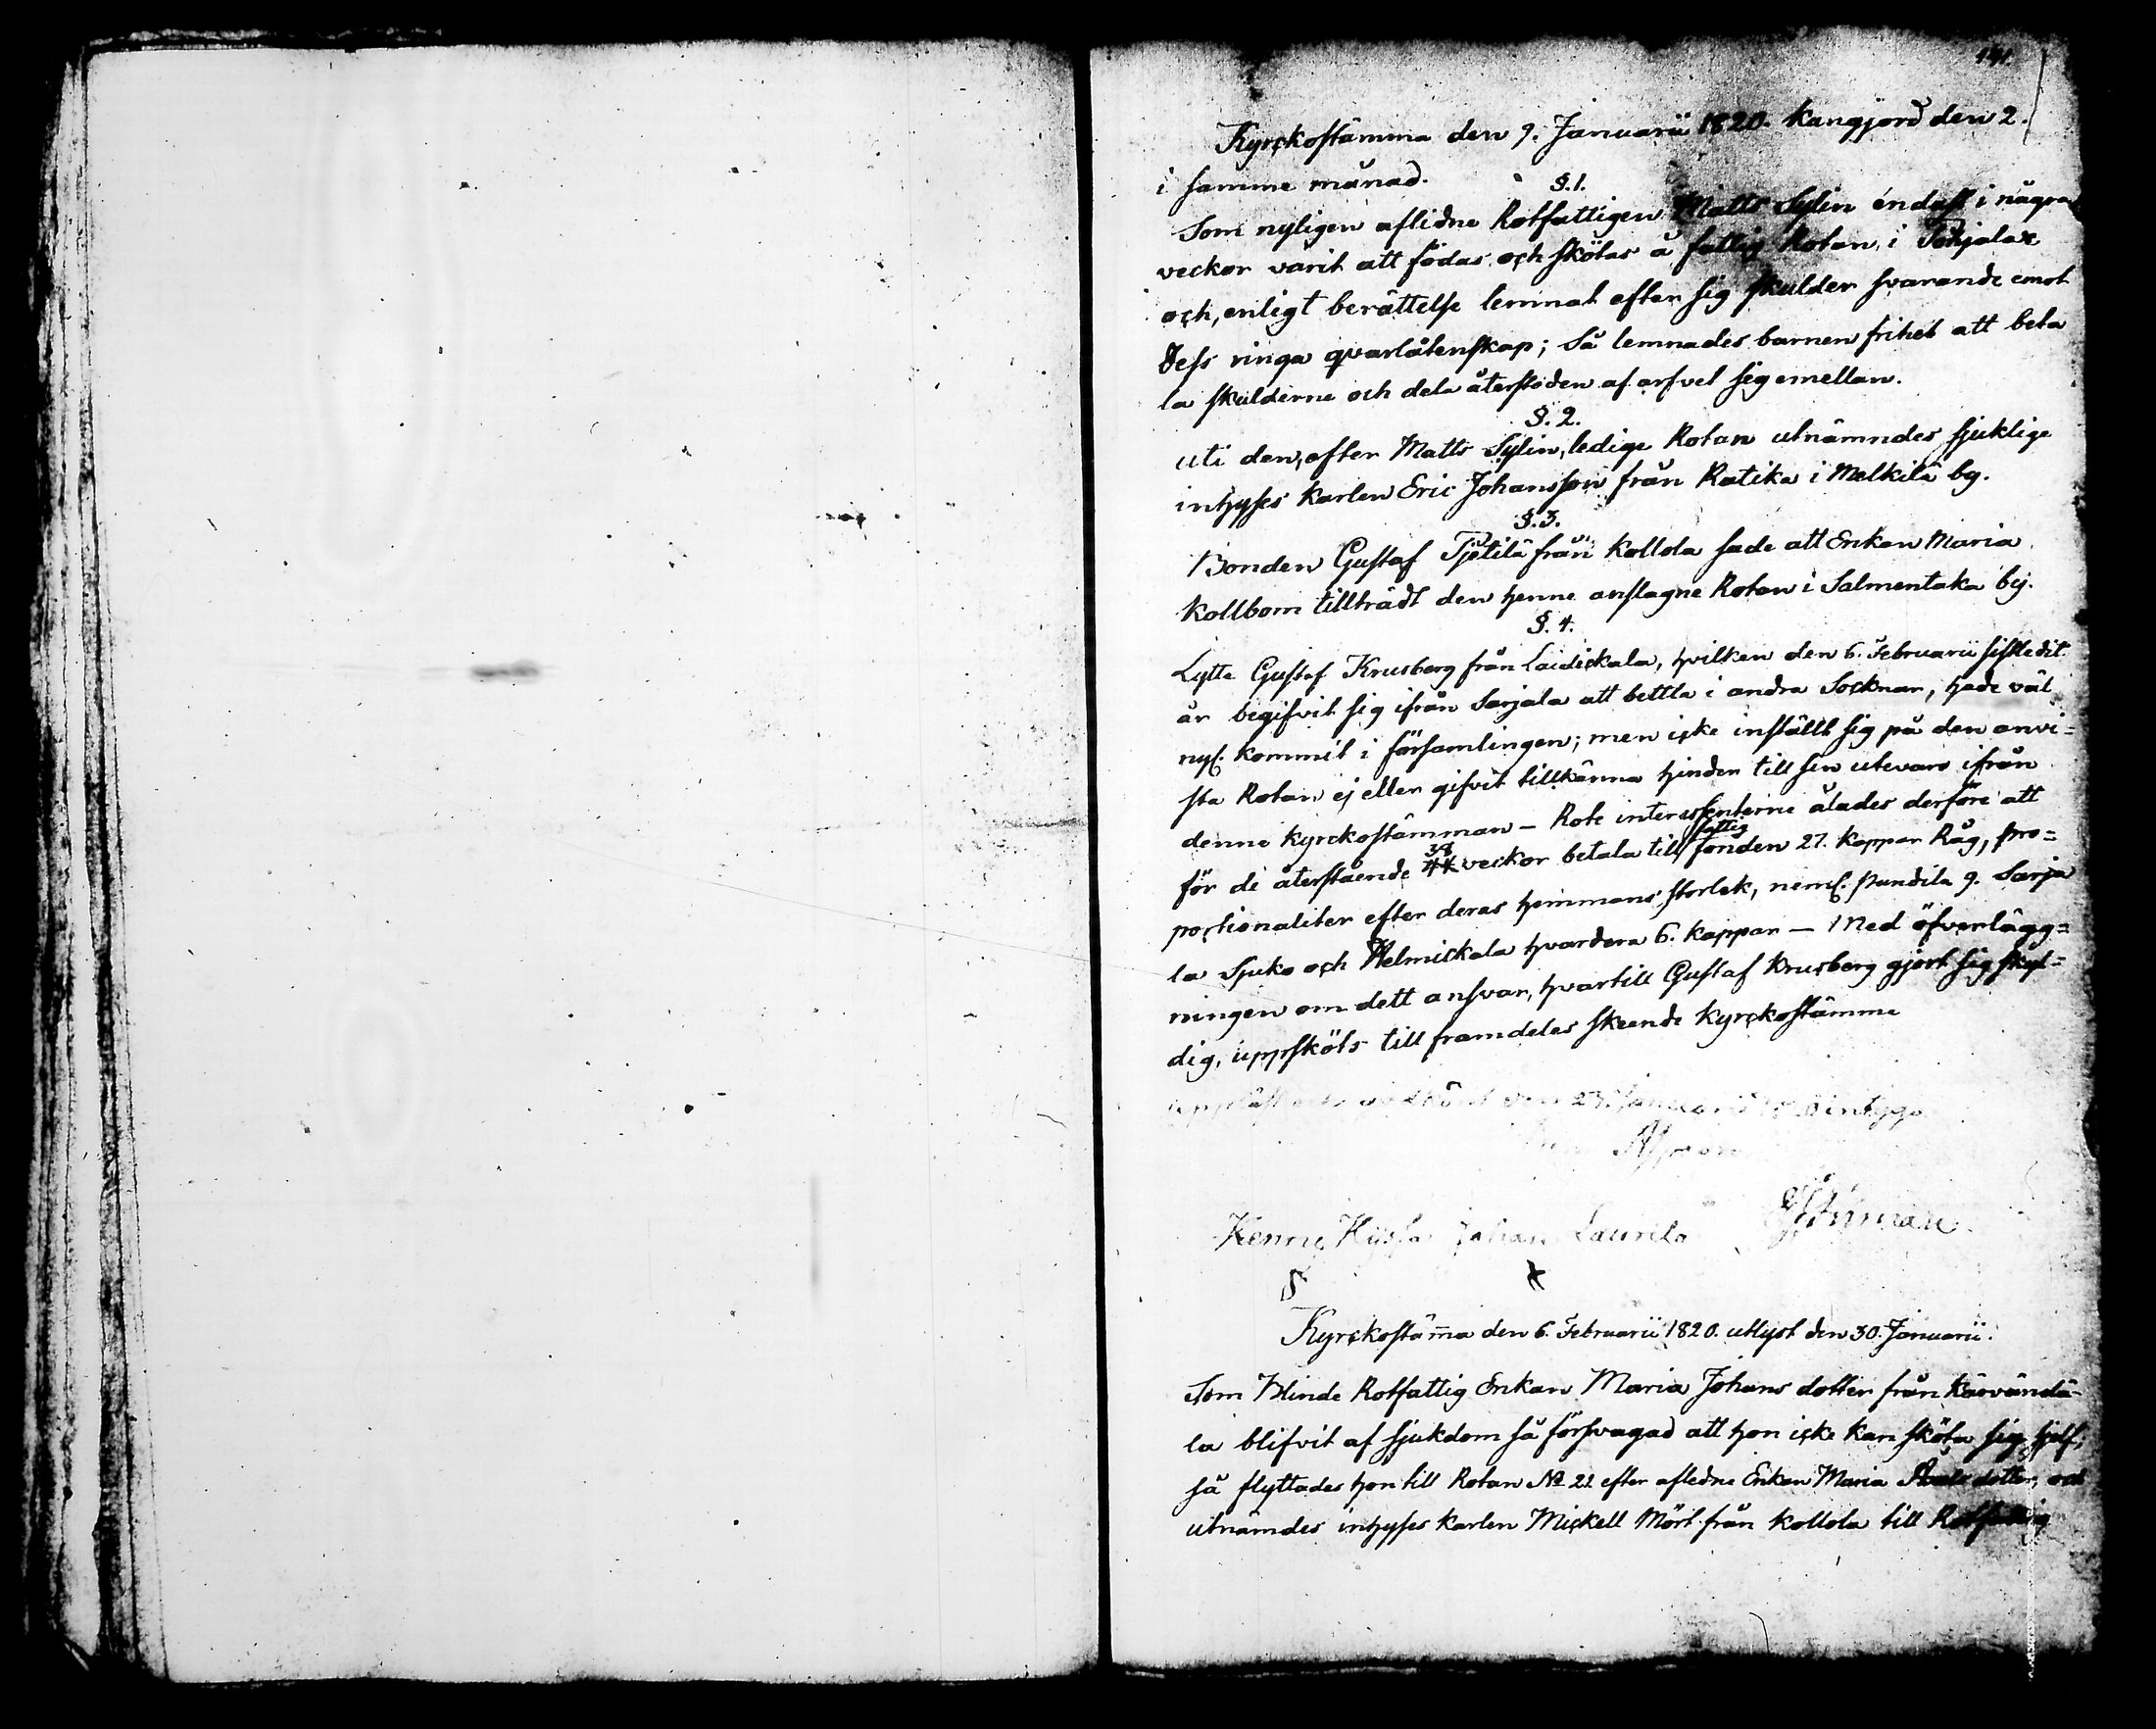 141.
Kyrckostämma den 9. Januarii 1820. Kungjord den 2.
i samme månad.
§. 1.
Som nyligen aflidne Rotfattigen Matts Sylin éndast i några
veckor varit att födas och skötas å fattig Rotan, i
och, enligt berättelse lemnat efter sig skulder svarande emot
dess ringa qvarlåtenskap; Så lemnades barnen frihet att beta
la skulderne och dela återstoden af arfvet sig emellan.
§. 2.
uti den, efter Matts Sylin, ledige Rotan utnämndes sjuklige
inhyses Karlen Eric Johansson från Ratika i Melkilä by.
§. 3.
Bonden Gustaf från Kollola sade att Enkan Maria
Kollbom tillträdt den henne anslagne Rotan i Salmentaka by.
§. 4.
Lytte Gustaf Krusberg från Laidickala, hvilken den 6. Februarii sistledit
år begifvit sig ifrån Sarjala att bettla i andra Socknar, hade väl
nyl. kommit i församlingen; men icke inställt sig på den anvi=
sta Rotan, ej eller gifvit tillkänna hinder till sin utevaro ifrån
denne Kyrckostämman – Rote interessenterne ålades derföre att
för de återstående 44 38 veckor betala till fattig fonden 27. Kappar Råg, pro=
portionaliter efter deras hemmans storlek, neml. Pundila 9. Sarja
la Sjuko och Helmickala hvardera 6. Kappar – Med öfverlägg=
ningen om dett ansvar, hvartill Gustaf Krusberg gjort sig skyl=
dig, uppsköts till framdeles skeende Kyrckostämma
uppläst den 23. Januarii intyga
Johan Laurila
Kyrckostäm̄a den 6. Februarii 1820. utlyst den 30. Januarii.
Som Blinde Rotfattig Enkan Maria Johans dotter från Kärvändä
la blifvit af sjukdom så försvagad att hon icke kan sköta sig sjelf,
så flyttades hon till Rotan № 21 efter afledne Enkan Maria dotter, och
utnämdes inhyses Karlen Mickell Mört från Kollola till Rotfattig